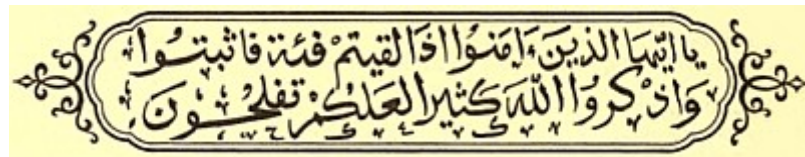 يا ايها الذين ءامنوا اذا لقيتم فئة فاثبتوا
واذكروا الله كثيرا لعلكم تفلحون